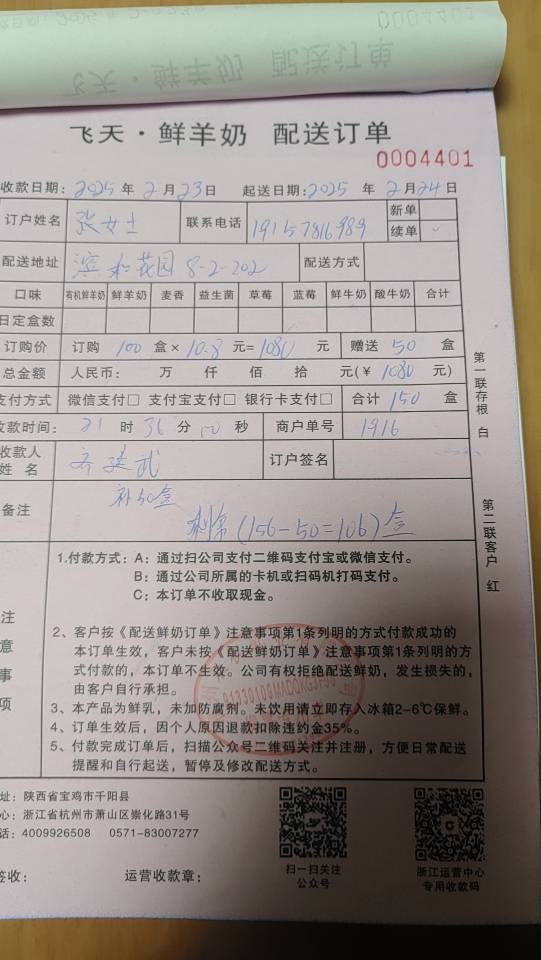 飞天·鲜羊奶 配送订单
0004401
收款日期：2025年2月23日 起送日期：2025年2月24日
订户姓名 张女士 联系电话 19157816989 新单
续单 ✓
配送地址 滨和花园 8-2-202 配送方式
口味 有机鲜羊奶 鲜羊奶 麦香 益生菌 草莓 蓝莓 鲜牛奶 酸牛奶 合计
日定盒数
订购价 订购 100 盒× 10.8 元= 1080 元 赠送 50 盒
总金额 人民币： 万 仟 佰 拾 元(￥ 1080 元)
支付方式 微信支付□ 支付宝支付□ 银行卡支付□ 合计 150 盒
收款时间： 21 时 36 分 00 秒 商户单号 1916
收款人
姓 名 订户签名
备注 补50盒
剩余(156-50=106)盒
第一联存根 白
第二联客户 红
注
意
事
项
1.付款方式：A：通过扫公司支付二维码支付宝或微信支付。
B：通过公司所属的卡机或扫码机打码支付。
C：本订单不收取现金。
2、客户按《配送鲜奶订单》注意事项第1条列明的方式付款成功的
本订单生效，客户未按《配送鲜奶订单》注意事项第1条列明的方
式付款的，本订单不生效。公司有权拒绝配送鲜奶，发生损失的，
由客户自行承担。
3、本产品为鲜乳，未加防腐剂。未饮用请立即存入冰箱2-6℃保鲜。
4、订单生效后，因个人原因退款扣除违约金35%。
5、付款完成订单后，扫描公众号二维码关注并注册，方便日常配送
提醒和自行起送，暂停及修改配送方式。
址：陕西省宝鸡市千阳县
心：浙江省杭州市萧山区崇化路31号
话：4009926508 0571-83007277
扫一扫关注
公众号
浙江运营中心
专用收款码
签收： 运营收款章：